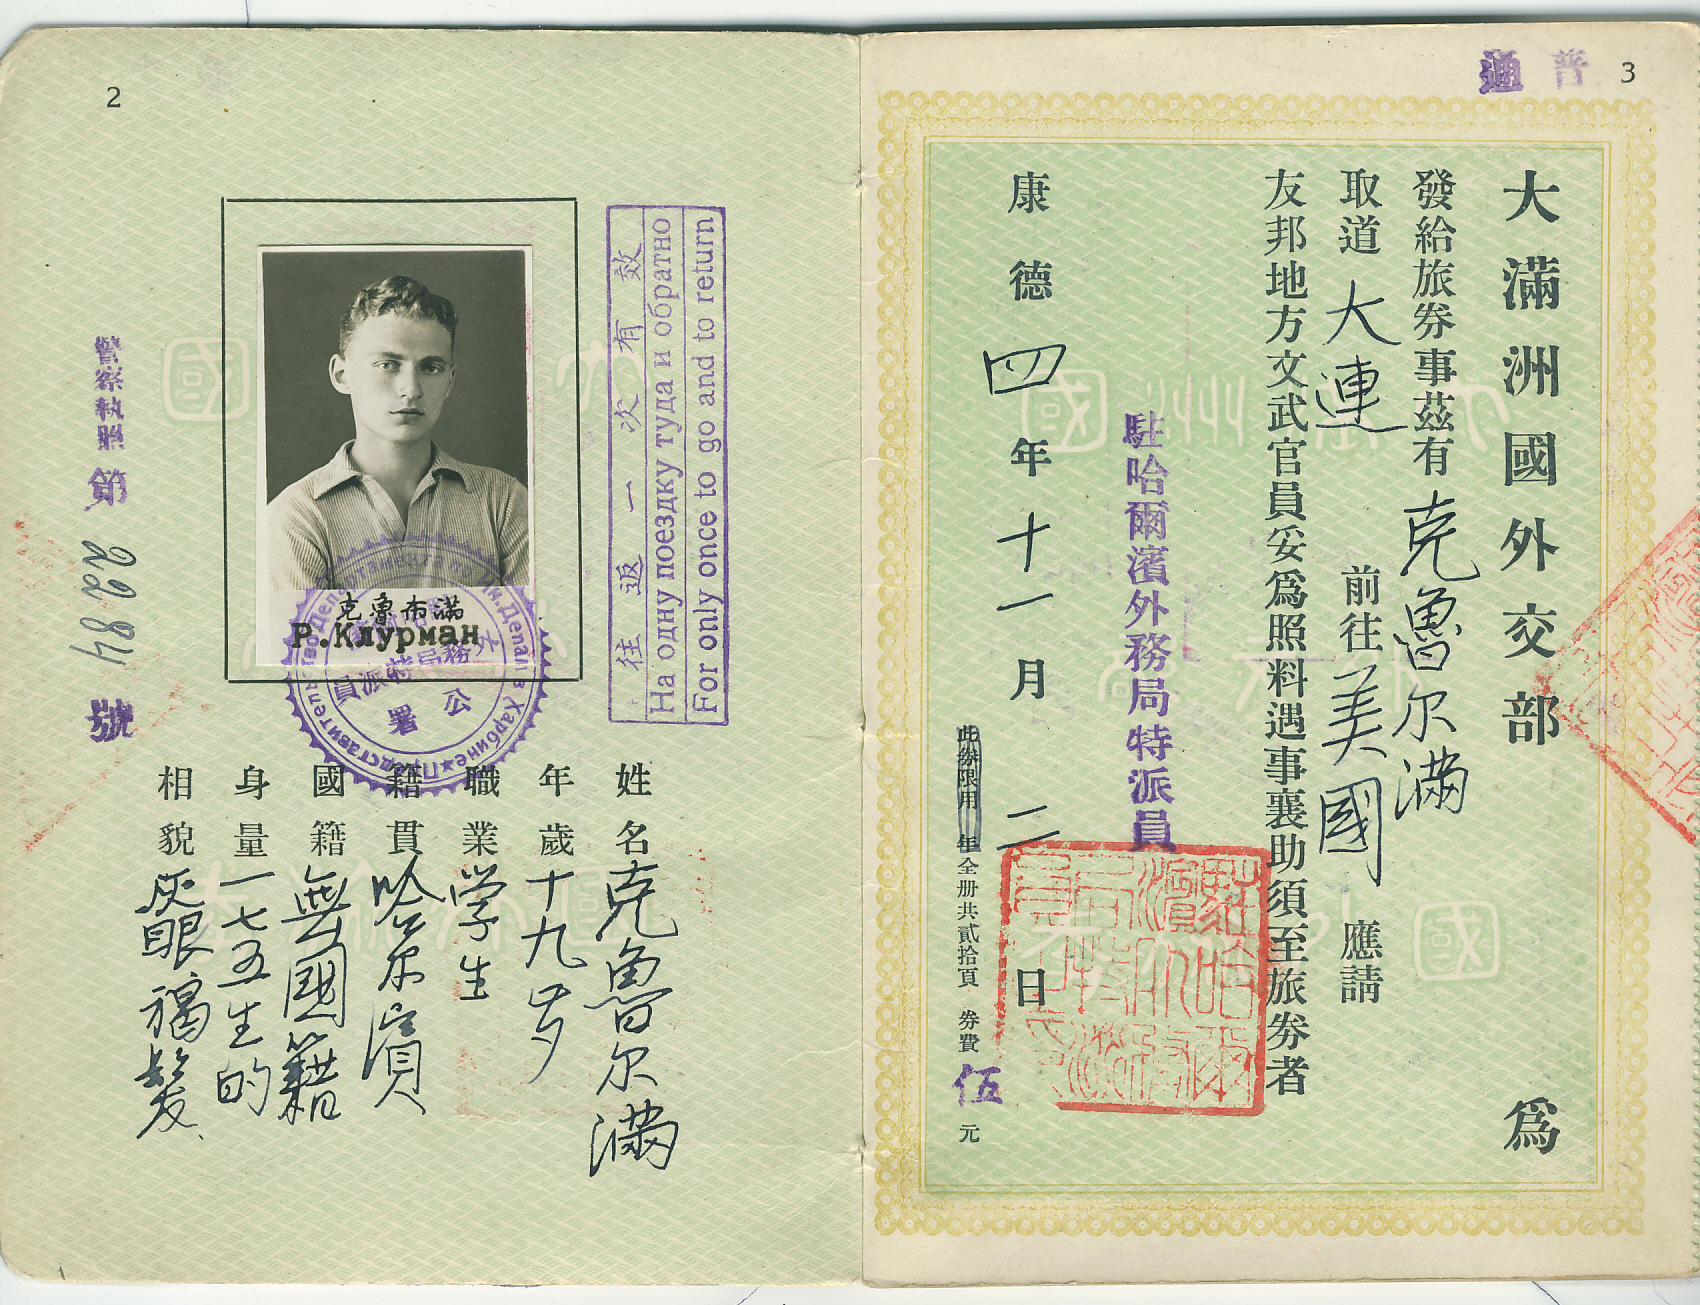 2
警察執照第 2284 號
克魯布滿
Р.Клурман
外務局特派員
公署
往返一次有效
На одну поездку туда и обратно
For only once to go and to return
姓名 克魯尔滿
年歲 十九岁
職業 学生
籍貫 哈尔濱
國籍 無國籍
身量 一七五生的
相貌 灰眼褐髮
普通
3
大滿洲國外交部 為
發給旅券事茲有 克魯尔滿
取道 大連 前往 美國 應請
友邦地方文武官員妥為照料遇事襄助須至旅券者
駐哈爾濱外務局特派員
康德 四 年 十一 月 二 日
此券限用 年全册共貳拾頁 券費 伍 元